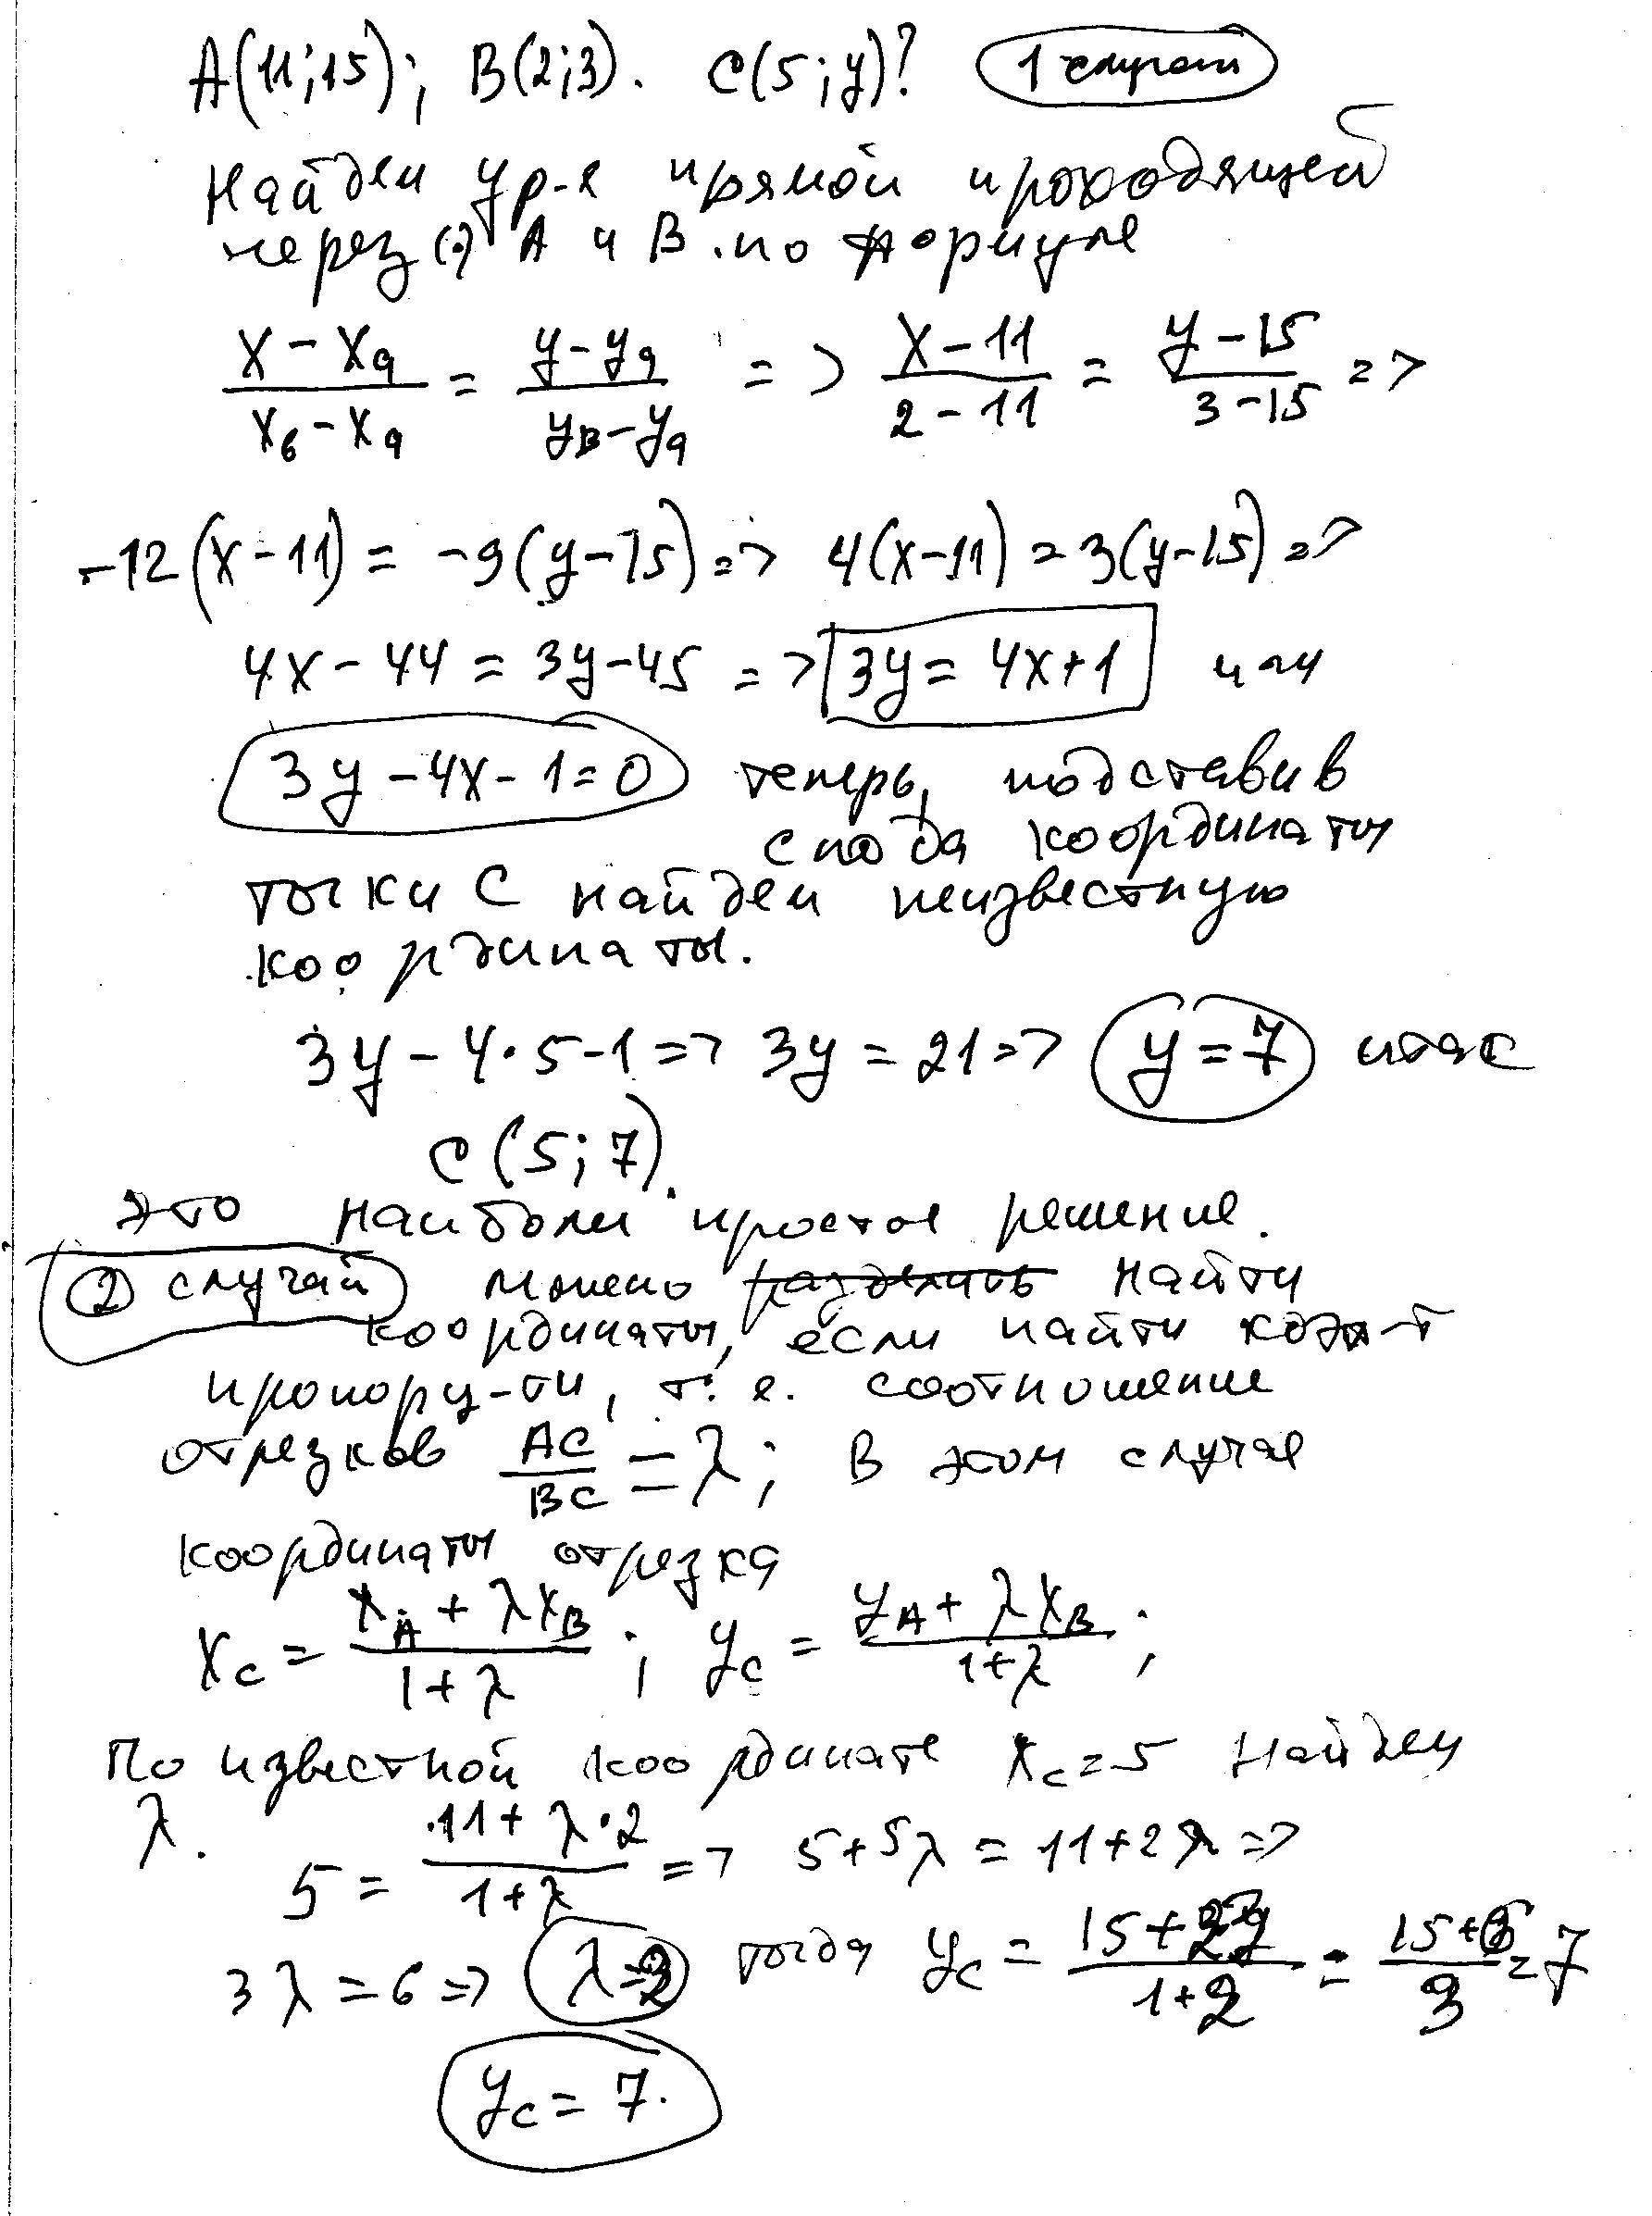 A(11;15); B(2;3). C(5;y)? 1 случай
Найдем ур-е прямой проходящей
через (·) A и B. по формуле
(x - xa)/(xв - xa) = (y - ya)/(yB - ya) => (x - 11)/(2 - 11) = (y - 15)/(3 - 15) =>
-12(x - 11) = -9(y - 15) => 4(x - 11) = 3(y - 15) =>
4x - 44 = 3y - 45 => 3y = 4x + 1 или
3y - 4x - 1 = 0 теперь, подставив
сюда координаты
точки C найдем неизвестную
координаты.
3y - 4·5 - 1 => 3y = 21 => y = 7 итак
C(5;7).
Это наиболи простое решение.
2 случай можно разделить найти
координаты, если найти коэф-т
пропорц-ти, т. е. соотношение
отрезков AC/BC = λ; В этом случае
координаты отрезка
xc = (xA + λxB)/(1 + λ); yc = (yA + λxB)/(1 + λ);
По известной координате xc = 5 Найдем
λ. 5 = (11 + λ·2)/(1 + λ) => 5 + 5λ = 11 + 2λ =>
3λ = 6 => λ = 2 тогда yc = (15 + )/(1 + 2) = (15 + 6)/3 = 7
yc = 7.